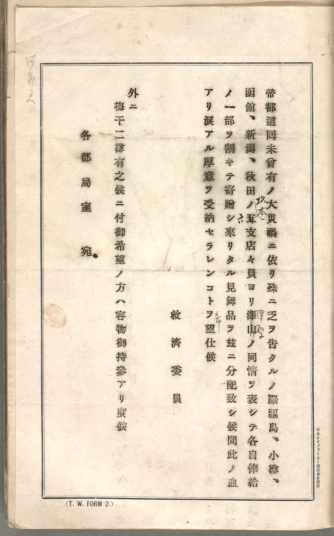 帝都這囘未曾有ノ大災禍ニ依リ殊ニ乏ヲ吿クルノ際福島、小樽、
函館、新潟、秋田ノ支店々員ヨリ深山ノ同情ヲ表シテ各自俸給
ノ一部ヲ割キテ寄贈シ來リタル見舞品ヲ玆ニ分配致シ候間此ノ血
アリ淚アル厚意ヲ受納セラレンコトヲ望仕候
救濟委員
外ニ
梅干二樽有之候ニ付御希望ノ方ハ容物御持參アリ度候
各部局室 宛
(T. W. FORM 2.)